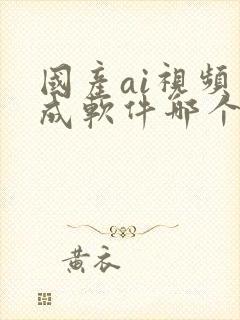 國產ai視頻
成軟件哪个
黄衣